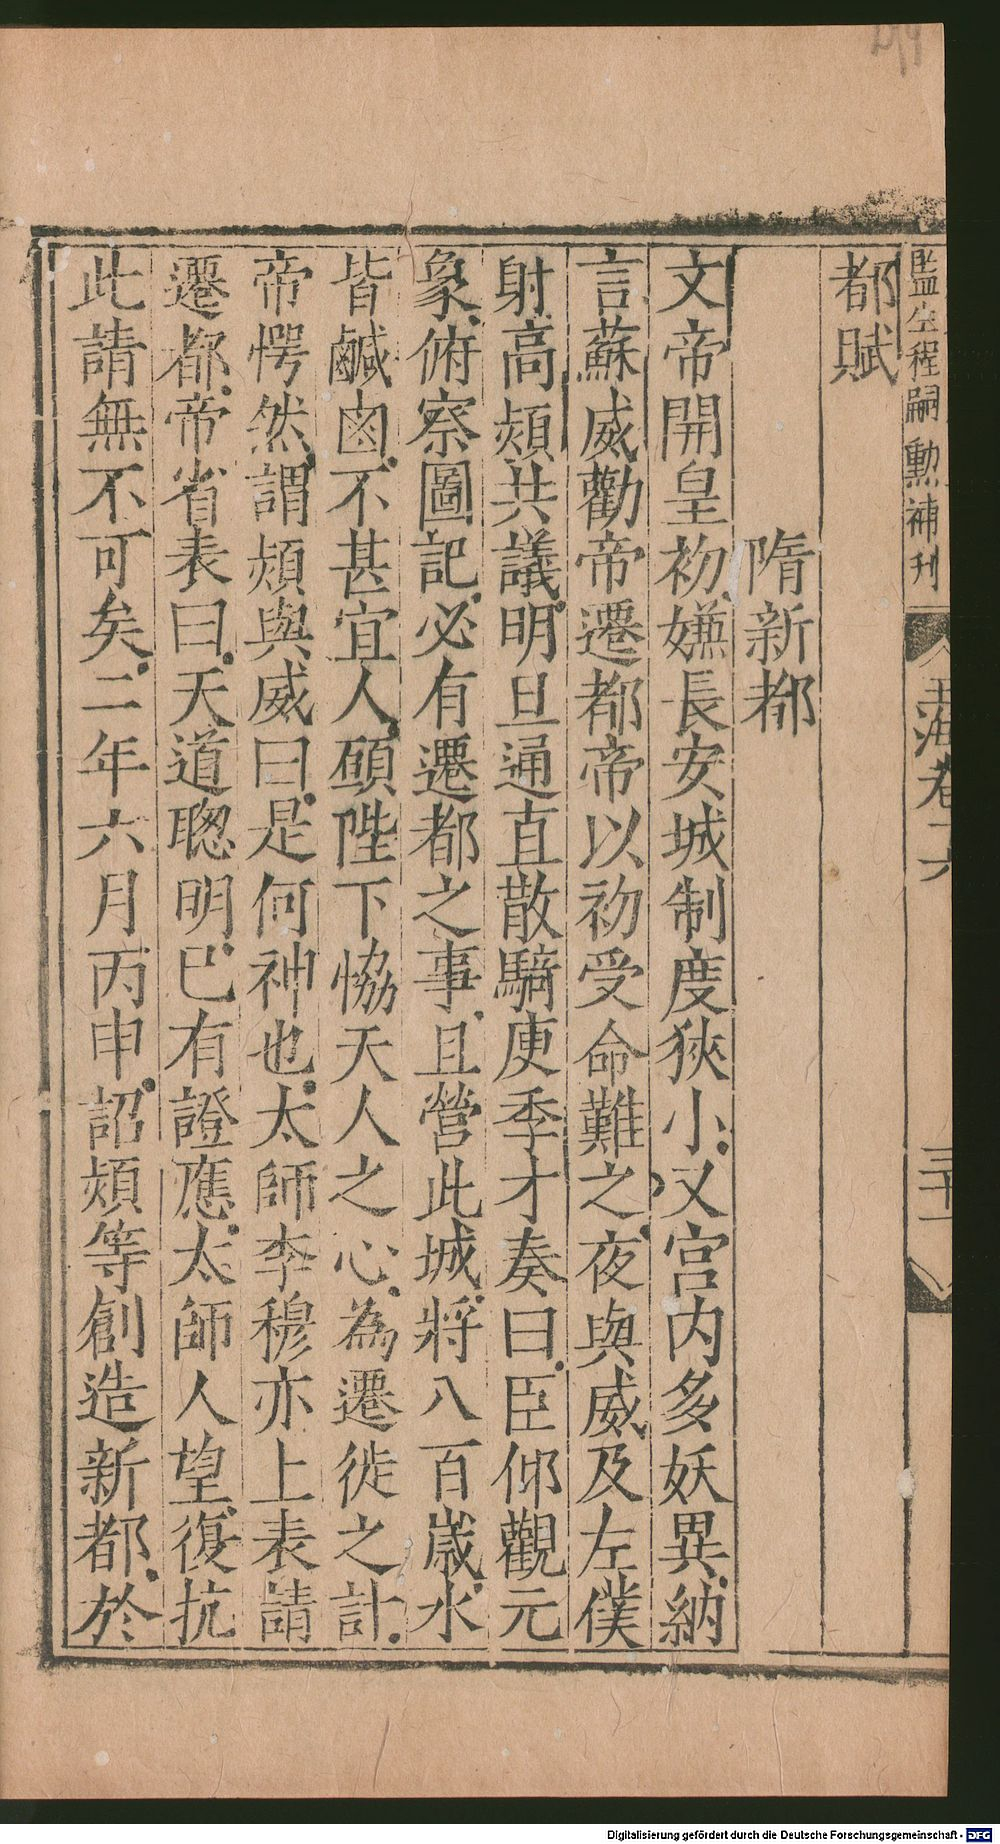 監生程嗣勲補刊
玉海卷
三十一
都賦
隋新都
文帝開皇初嫌長安城制度狹小又宮内多妖異納
言蘇威勸帝遷都帝以初受命難之夜與威及左僕
射高熲共議明旦通直散騎庾季才奏曰臣仰觀元
象俯察圖記必有遷都之事且營此城將八百歲水
皆鹹鹵不甚宜人願陛下恊天人之心為遷徙之計
帝愕然謂熲與威曰是何神也太師李穆亦上表請
遷都帝省表曰天道聰明已有證應太師人望復抗
此請無不可矣二年六月丙申詔熲等創造新都於
Digitalisierung gefördert durch die Deutsche Forschungsgemeinschaft - DFG